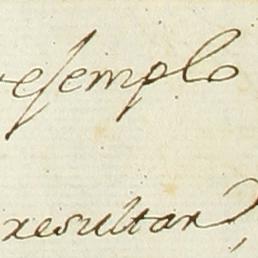 esemplo
resultan